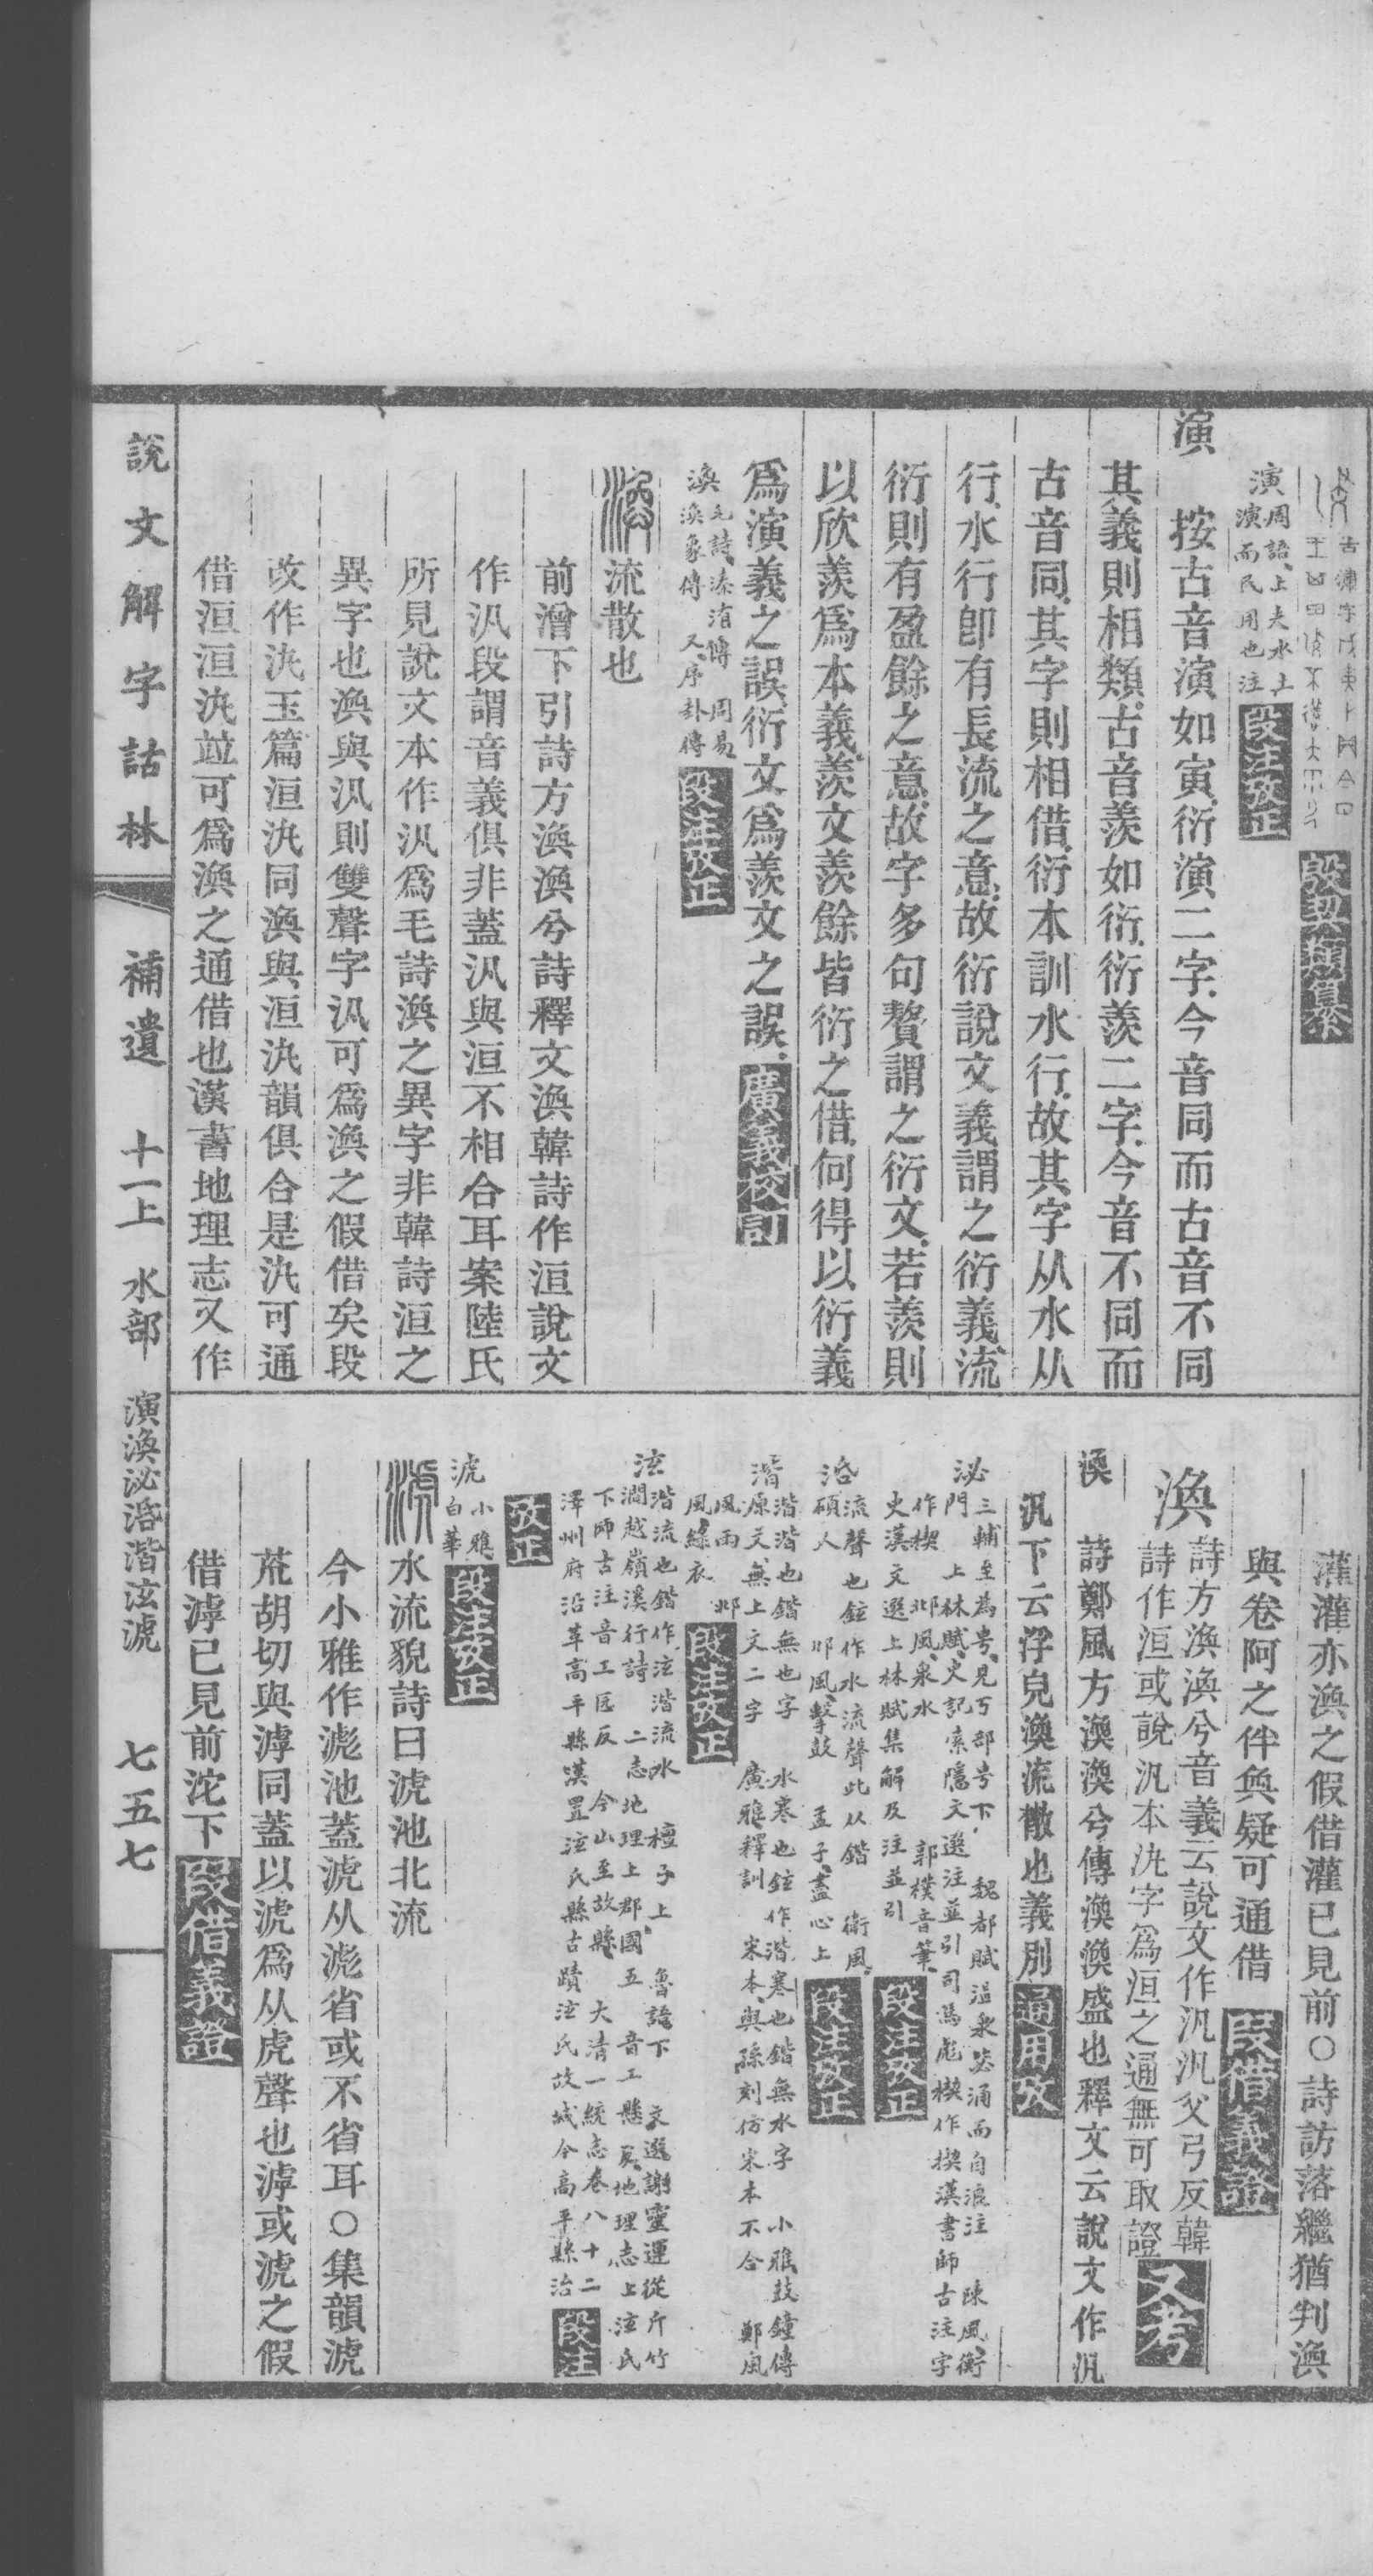 殷契類纂
演 周語上夫水土
演而民用也注 段注攷正
演 按古音演如寅衍演二字今音同而古音不同
其義則相類古音羨如衍衍羨二字今音不同而
古音同其字則相借衍本訓水行故其字从水从
行水行卽有長流之意故衍說文義謂之衍義流
衍則有盈餘之意故字多句贅謂之衍文若羨則
以欣羨爲本義羨文羨餘皆衍之借何得以衍義
爲演義之誤衍文爲羨文之誤 廣義校訂
渙 毛詩溱洧傳 周易
渙象傳 又序卦傳 段注攷正
渙 流散也
前潧下引詩方渙渙兮詩釋文渙韓詩作洹說文
作汎段謂音義俱非蓋汎與洹不相合耳案陸氏
所見說文本作汎爲毛詩渙之異字非韓詩洹之
異字也渙與汎則雙聲字汎可爲渙之假借矣段
改作汍玉篇洹汍同渙與洹汍韻俱合是汍可通
借洹洹汍竝可爲渙之通借也漢書地理志又作
灌灌亦渙之假借灌已見前○詩訪落繼猶判渙
與卷阿之伴奐疑可通借 段借義證
渙 詩方渙渙兮音義云說文作汎汎父弓反韓
詩作洹或說汎本汍字爲洹之通無可取證 又考
渙 詩鄭風方渙渙兮傳渙渙盛也釋文云說文作汎
汎下云浮皃渙流散也義別 通用攷
泌 三輔至爲㝵見丂部㝵下 魏都賦溫泉毖涌而自浪注 陳風衡
門 上林賦史記索隱文選注並引司馬彪楔作楔漢書師古注字
作楔 邶風泉水 郭樸音筆
史漢文選上林賦集解及注並引 段注攷正
活 流聲也鉉作水流聲此从鍇 衛風
碩人 邶風擊鼓 孟子盡心上 段注攷正
湝 湝湝也鍇無也字 水寒也鉉作湝寒也鍇無水字 小雅鼓鐘傳
源文無上文二字 廣雅釋訓 宋本與孫刻仿宋本不合 鄭風
風雨 邶
風綠衣 段注攷正
泫 湝流也鍇作泫湝流水 檀弓上 魯語下 文選謝靈運從斤竹
澗越嶺溪行詩 二志地理上郡國五 音工縣反地理志上泫氏
下師古注音工匠反 今山至故縣 大清一統志卷八十二
澤州府沿革高平縣漢置泫氏縣古蹟泫氏故城今高平縣治 段注
攷正
淲 小雅
白華 段注攷正
淲 水流貌詩曰淲池北流
今小雅作滮池蓋淲从滮省或不省耳○集韻淲
荒胡切與滹同蓋以淲爲从虎聲也滹或淲之假
借滹已見前沱下 段借義證
說文解字詁林 補遺 十一上 水部 演渙泌活湝泫淲 七五七